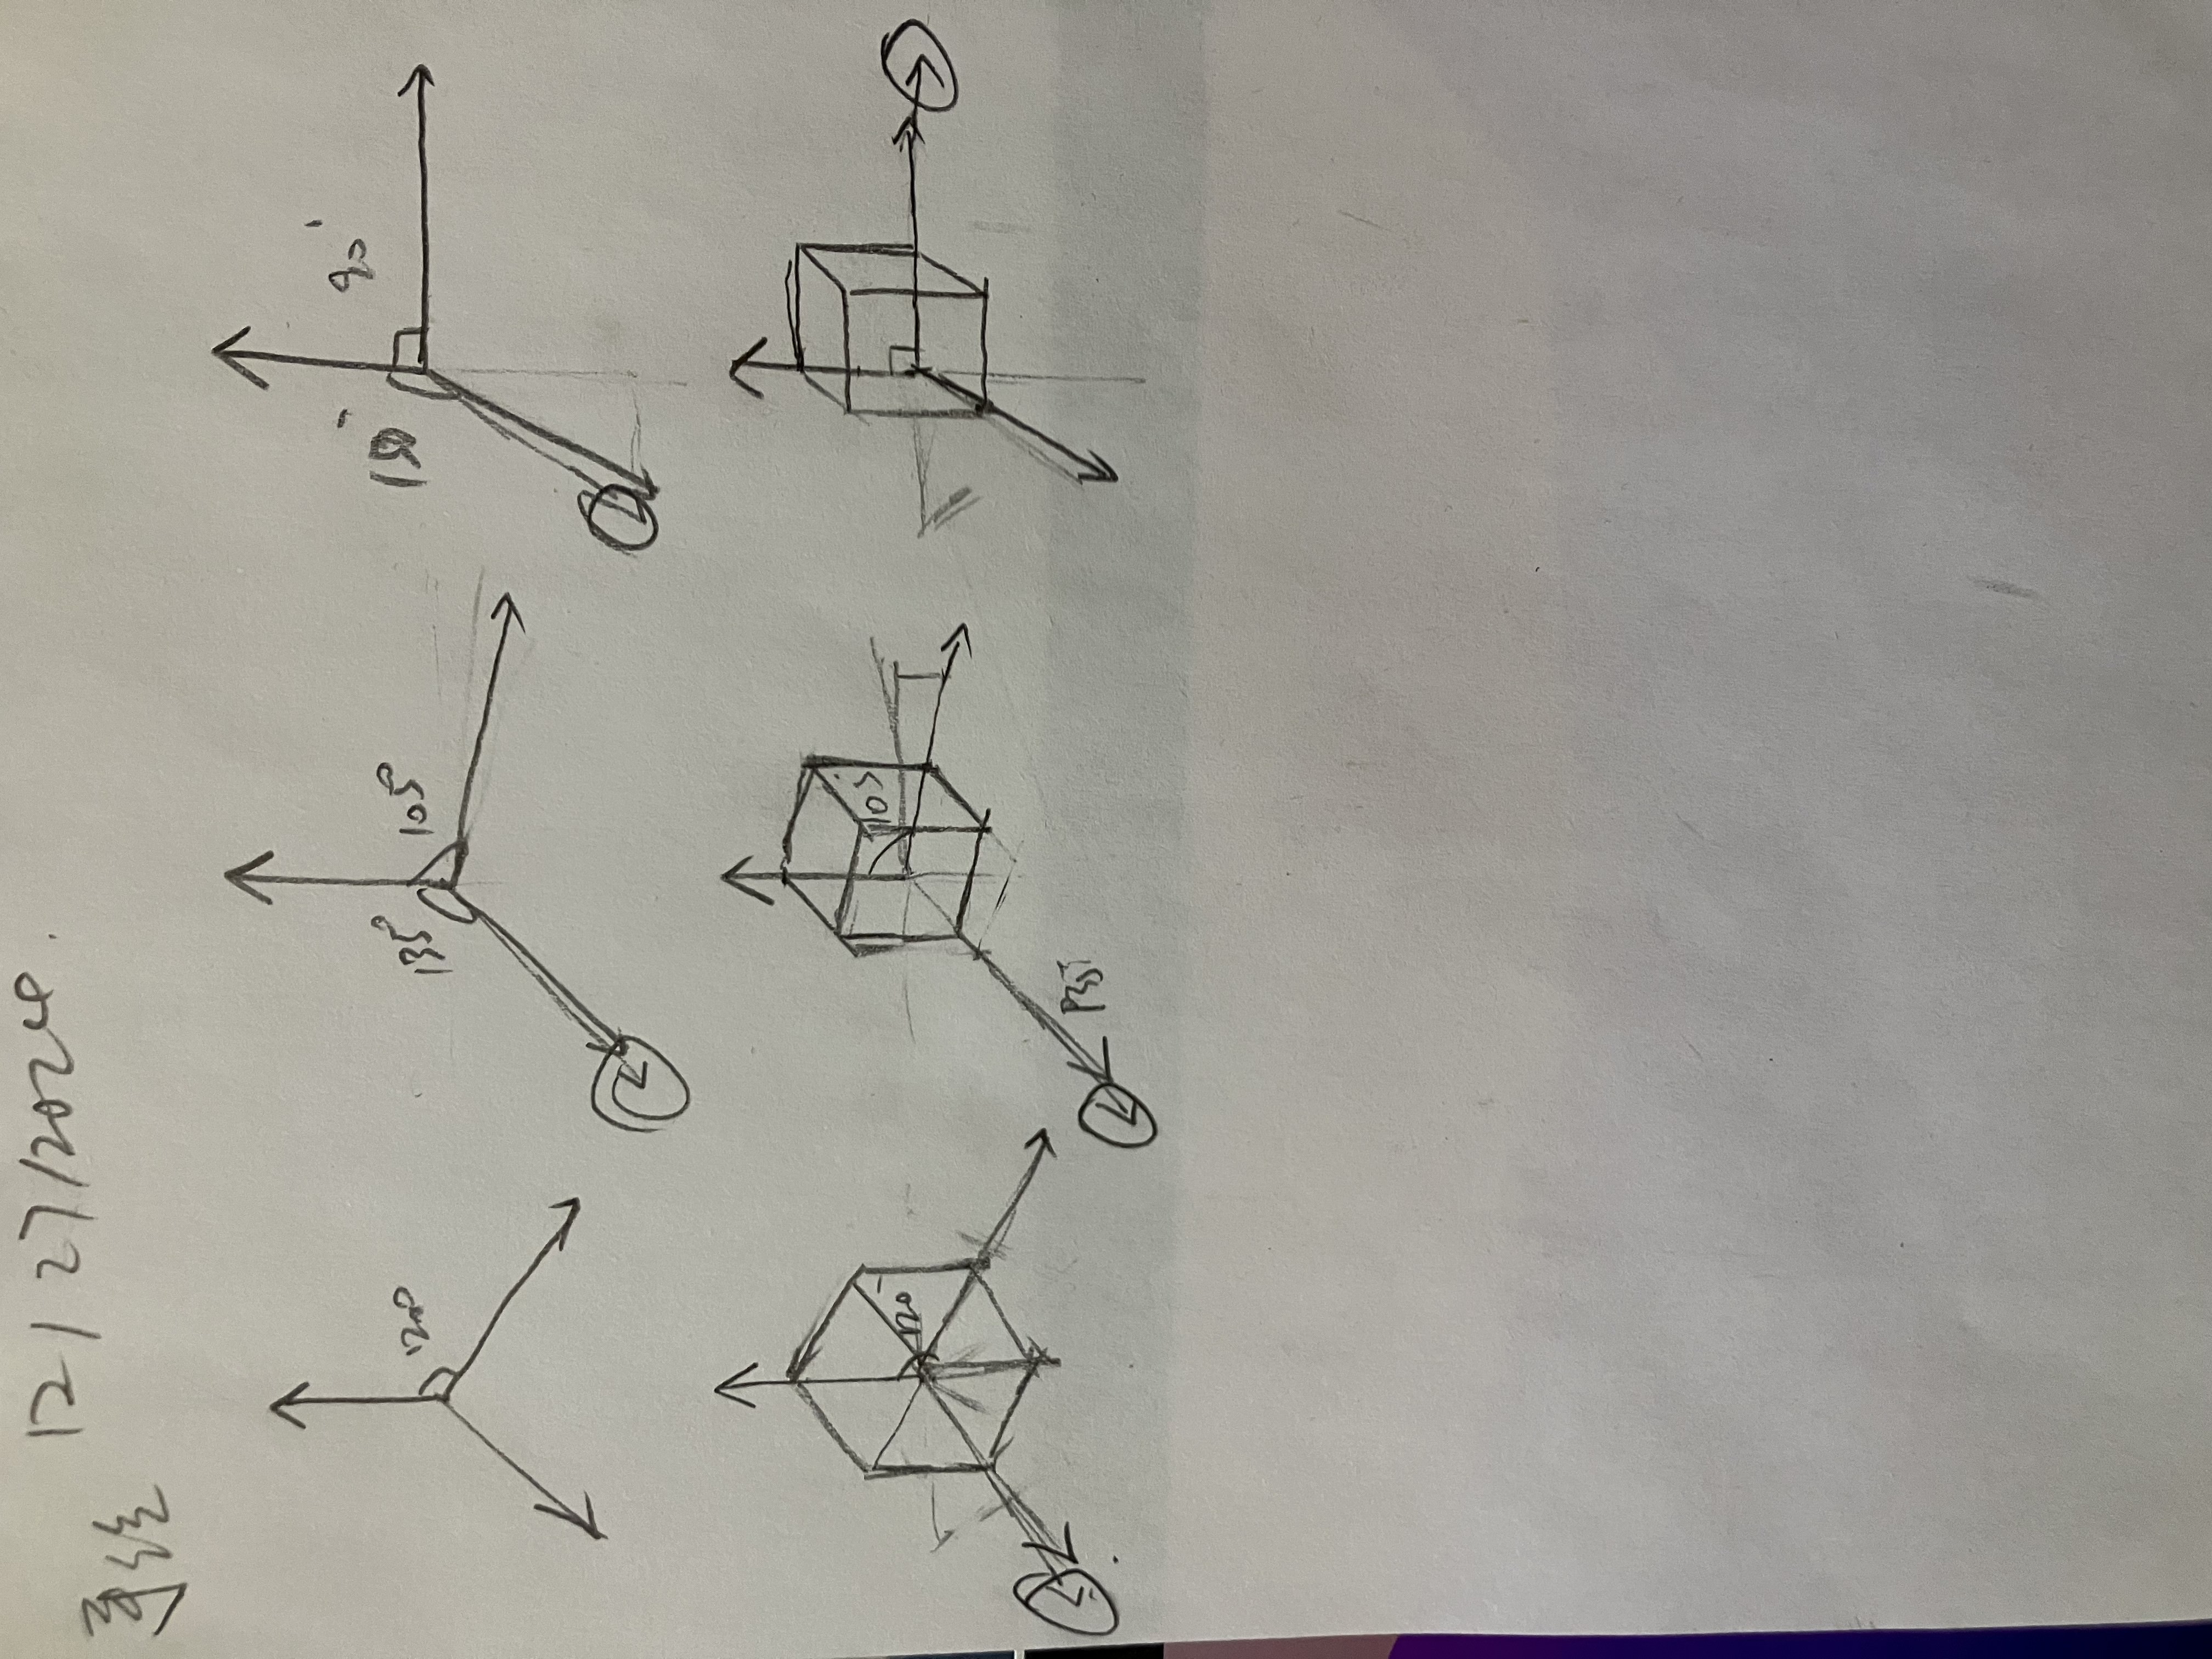 12/27/2024.
120°
135° 105°
150° 90°
120
105
135